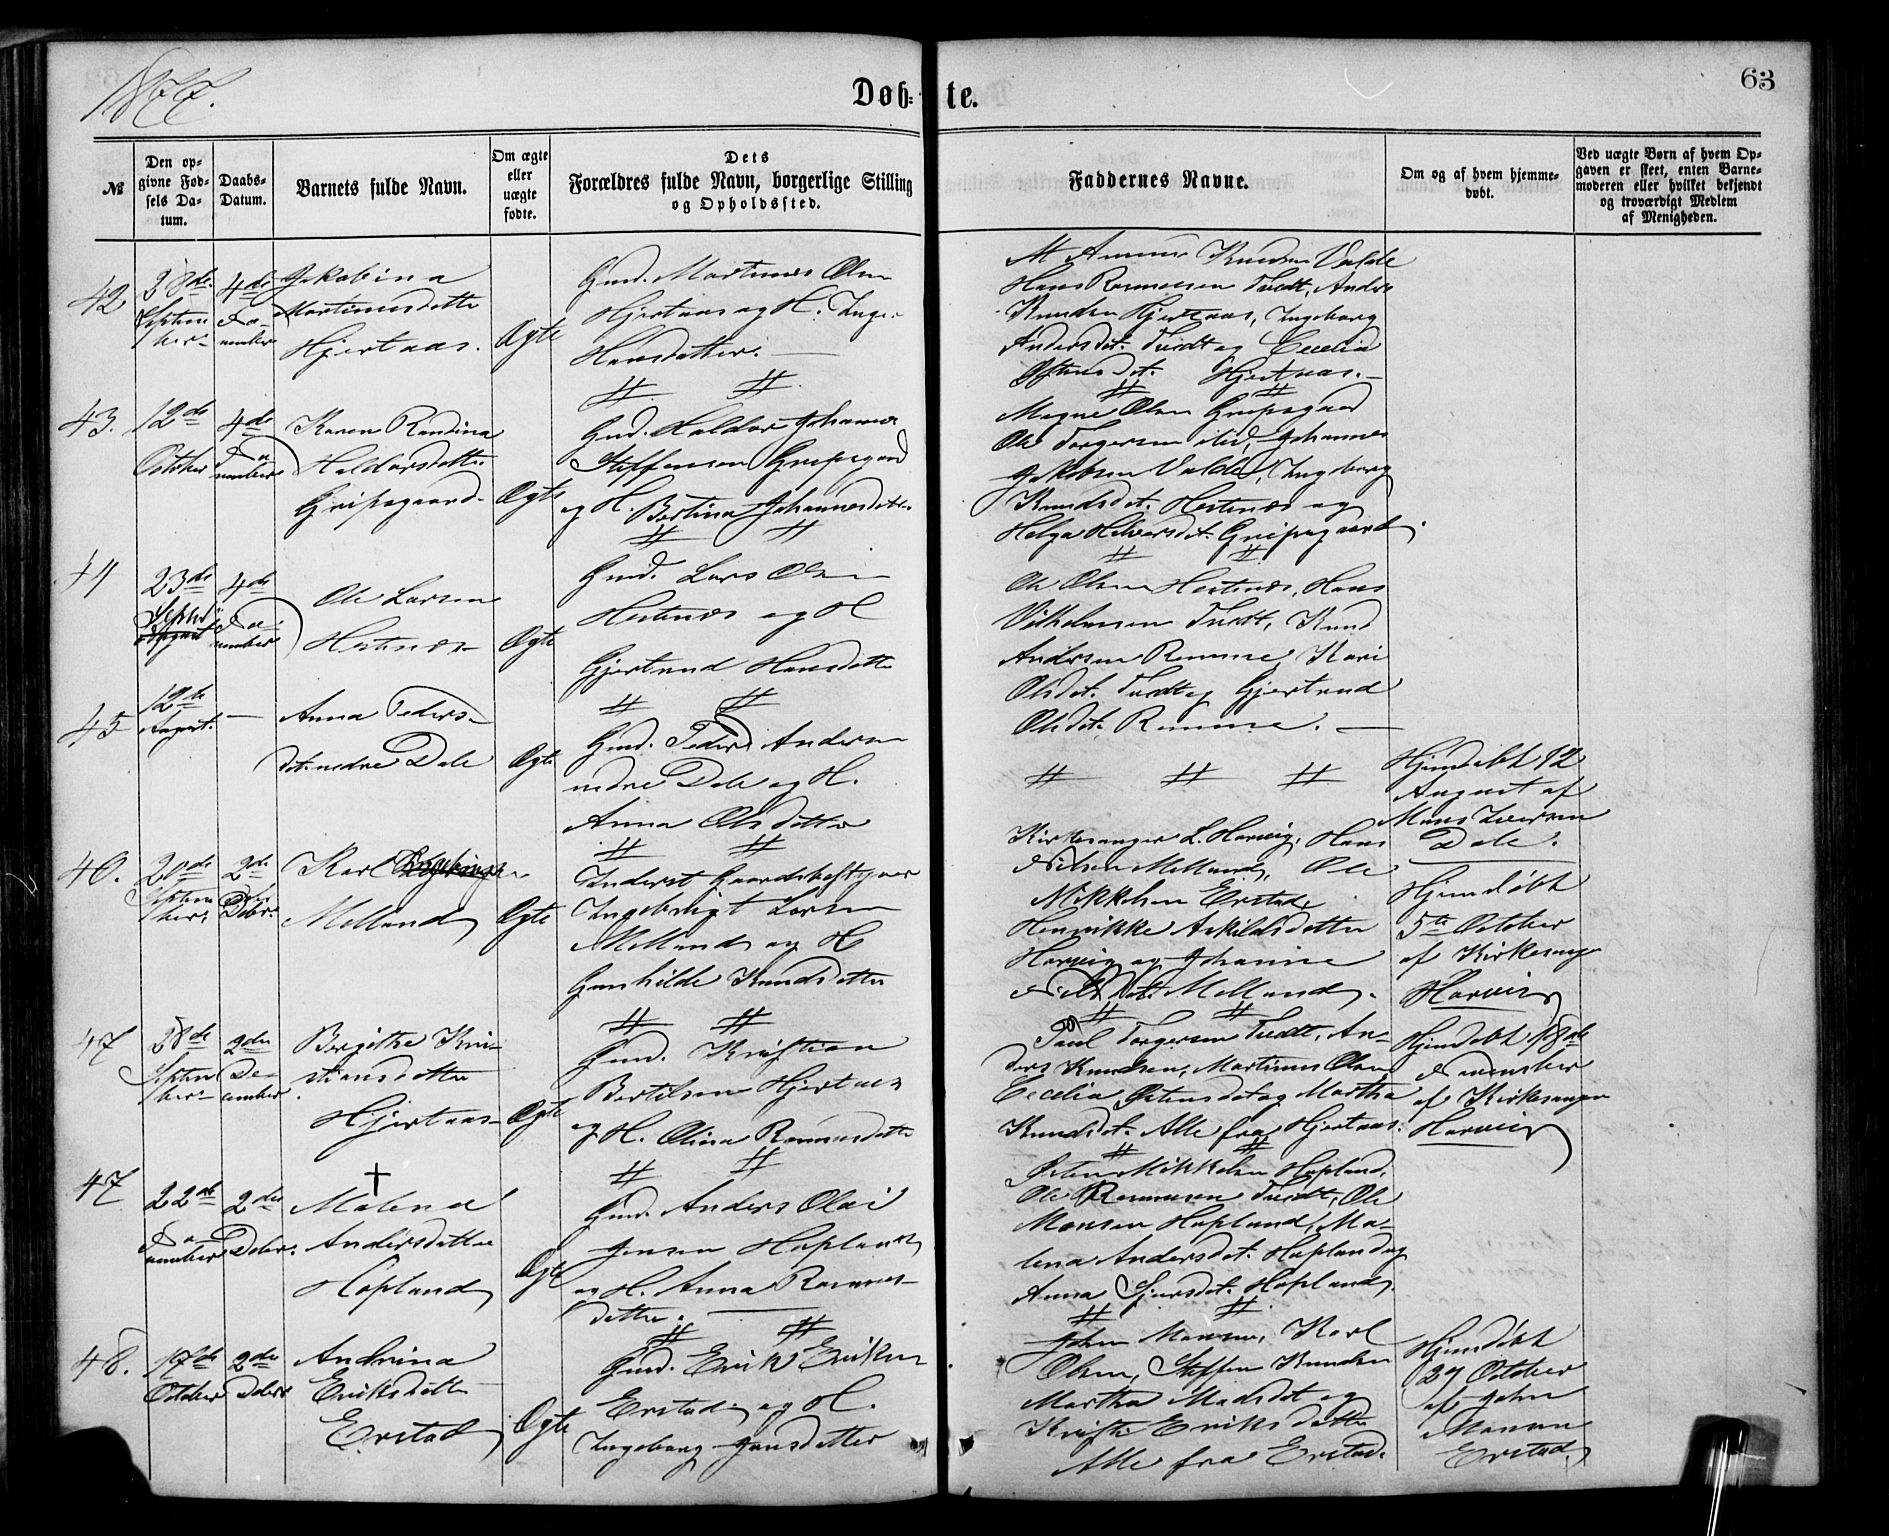 1877.
Døb-te.
63
№
Den op-
givne Fød-
sels Da-
tum.
Daabs-
Datum.
Barnets fulde Navn.
Om ægte
eller
uægte
fødte.
Dets
Forældres fulde Navn, borgerlige Stilling
og Opholdssted.
Faddernes Navne.
Om og af hvem hjemme-
døbt.
Ved uægte Børn af hvem Op-
gaven er skeet, enten Barne-
moderen eller hvilket bekjendt
og troværdigt Medlem
af Menigheden.
42
28de
Septem
ber
4de
November
Jakobina
Martinusdatter
Hjertaas.
Ægte
Gmd. Martinus Olsen
Hjertaas og H. Inger
Hansdatter.
Knudsen Valde
Hans Rasmussen Tvedt, Anders
Knudsen Hjertaas, Ingeborg
Andersdt. Tvedt og Cecelia
Østensdt. Hjertaas.
43.
12de
October
4de
November
Karen Randina
Haldorsdatter
Gripsgaard
Ægte
Gmd. Haldor Johannes
Steffensen Gripsgaard
og H. Bertina Johannesdatter
Magne Olsen Gripsgaard
Ole Torgersen ibid, Johannes
Jakobsen Valde, Ingeborg
Knudsdt. Hestenes og
Helga Halvorsdt. Gripsgaard
44
23de
Septbr
August
4de
November
Ole Larsen
Hestenes
Ægte
Gmd. Lars Olsen
Hestenes og H
Gjertrud Hansdatter
Ole Olsen Hestenes, Hans
Vilhelmsen Tvedt, Knud
Andersen Remme, Kari
Olsdt. Tvedt og Gjertrud
Olsdt. Remme.
45
12te
August.
Anna Peders-
dt. nedre Dale
Ægte
Gmd. Peder Andersen
nedre Dale og H.
Anna Olsdatter
Hjemdøbt 12
August af
Mons Iversen
Dale.
46.
20de
September
2den
Debr.
Karl
Melland
Ægte
Inderst Gaardsbestyrer
Ingebrigt Larsen
Melland og H
Gunhilde Knudsdatter
Kirkesanger L. Harvig, Hans
Nilsen Melland, Ole
Mikkelsen Erstad,
Henrikke Askildsdatter
Harvig og Johanne
Nilsdt. Melland.
Hjemdøbt
5te October
af Kirkesanger
Harvig
47
28de
September
2den
December
Bergithe Kri-
stiansdatter
Hjertaas
Ægte
Gmd. Kristian
Bertilsen Hjertaas
og H. Olina Rasmusdatter
Paul Torgersen Tvedt, An-
ders Knudsen, Martinus Olsen
Cecelia Østensdt og Martha
Knudsdt. Alle fra Hjertaas.
Hjemdøbt 18de
November
af Kirkesanger
Harvig
47
22de
November
2den
Debr.
†
Malene
Andersdatter
Hopland
Ægte
Gmd. Anders Olai
Jensen Hopland
og H. Anna Rasmus-
datter.
Østen Mikkelsen Hopland.
Ole Rasmussen Tvedt, Ole
Monsen Hopland, Ma-
lena Andersdt. Hopland og
Anna Sjursdt. Hopland.
48.
17de
October
2den
Debr
Andrina
Eriksdatter
Erstad
Ægte
Gmd. Erik Eriksen
Erstad og H.
Ingeborg Jonsdatter
John Monsen, Karl
Olsen, Steffen Knudsen
Martha Madsdt og
Eriksdatter
Alle fra Erstad.
Hjemdøbt
29 October
af John
Monsen
Erstad.